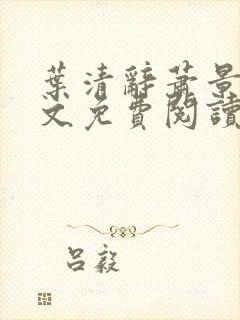 葉清辭蕭景
文免費閱讀
呂毅